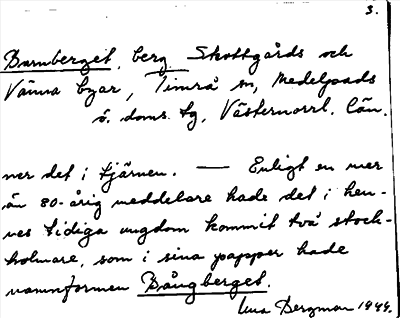 3.
Barnberget, berg. Skottgårds och
Vänna byar, Timrå sn, Medelpads
ö. doms. tg, Västernorrl. län.
ner det i tjärnen. — Enligt en mer
än 80-årig meddelare hade det i hen-
nes tidiga ungdom kommit två stock-
holmare, som i sina papper hade
namnformen Bångberget.
Bergman 1944.